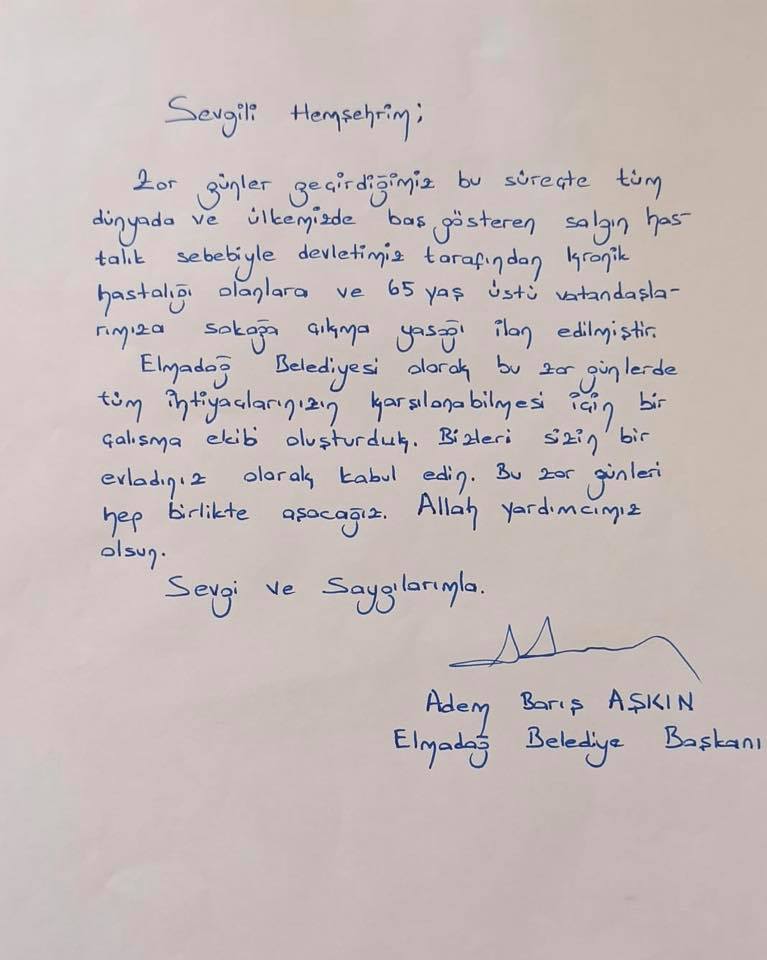 Sevgili Hemşehrim;
Zor günler geçirdiğimiz bu süreçte tüm
dünyada ve ülkemizde baş gösteren salgın has-
talık sebebiyle devletimiz tarafından kronik
hastalığı olanlara ve 65 yaş üstü vatandaşla-
rımıza sokağa çıkma yasağı ilan edilmiştir.
Elmadağ Belediyesi olarak bu zor günlerde
tüm ihtiyaçlarınızın karşılanabilmesi için bir
çalışma ekibi oluşturduk. Bizleri sizin bir
evladınız olarak kabul edin. Bu zor günleri
hep birlikte aşacağız. Allah yardımcımız
olsun.
Sevgi ve Saygılarımla.
Adem Barış AŞKIN
Elmadağ Belediye Başkanı